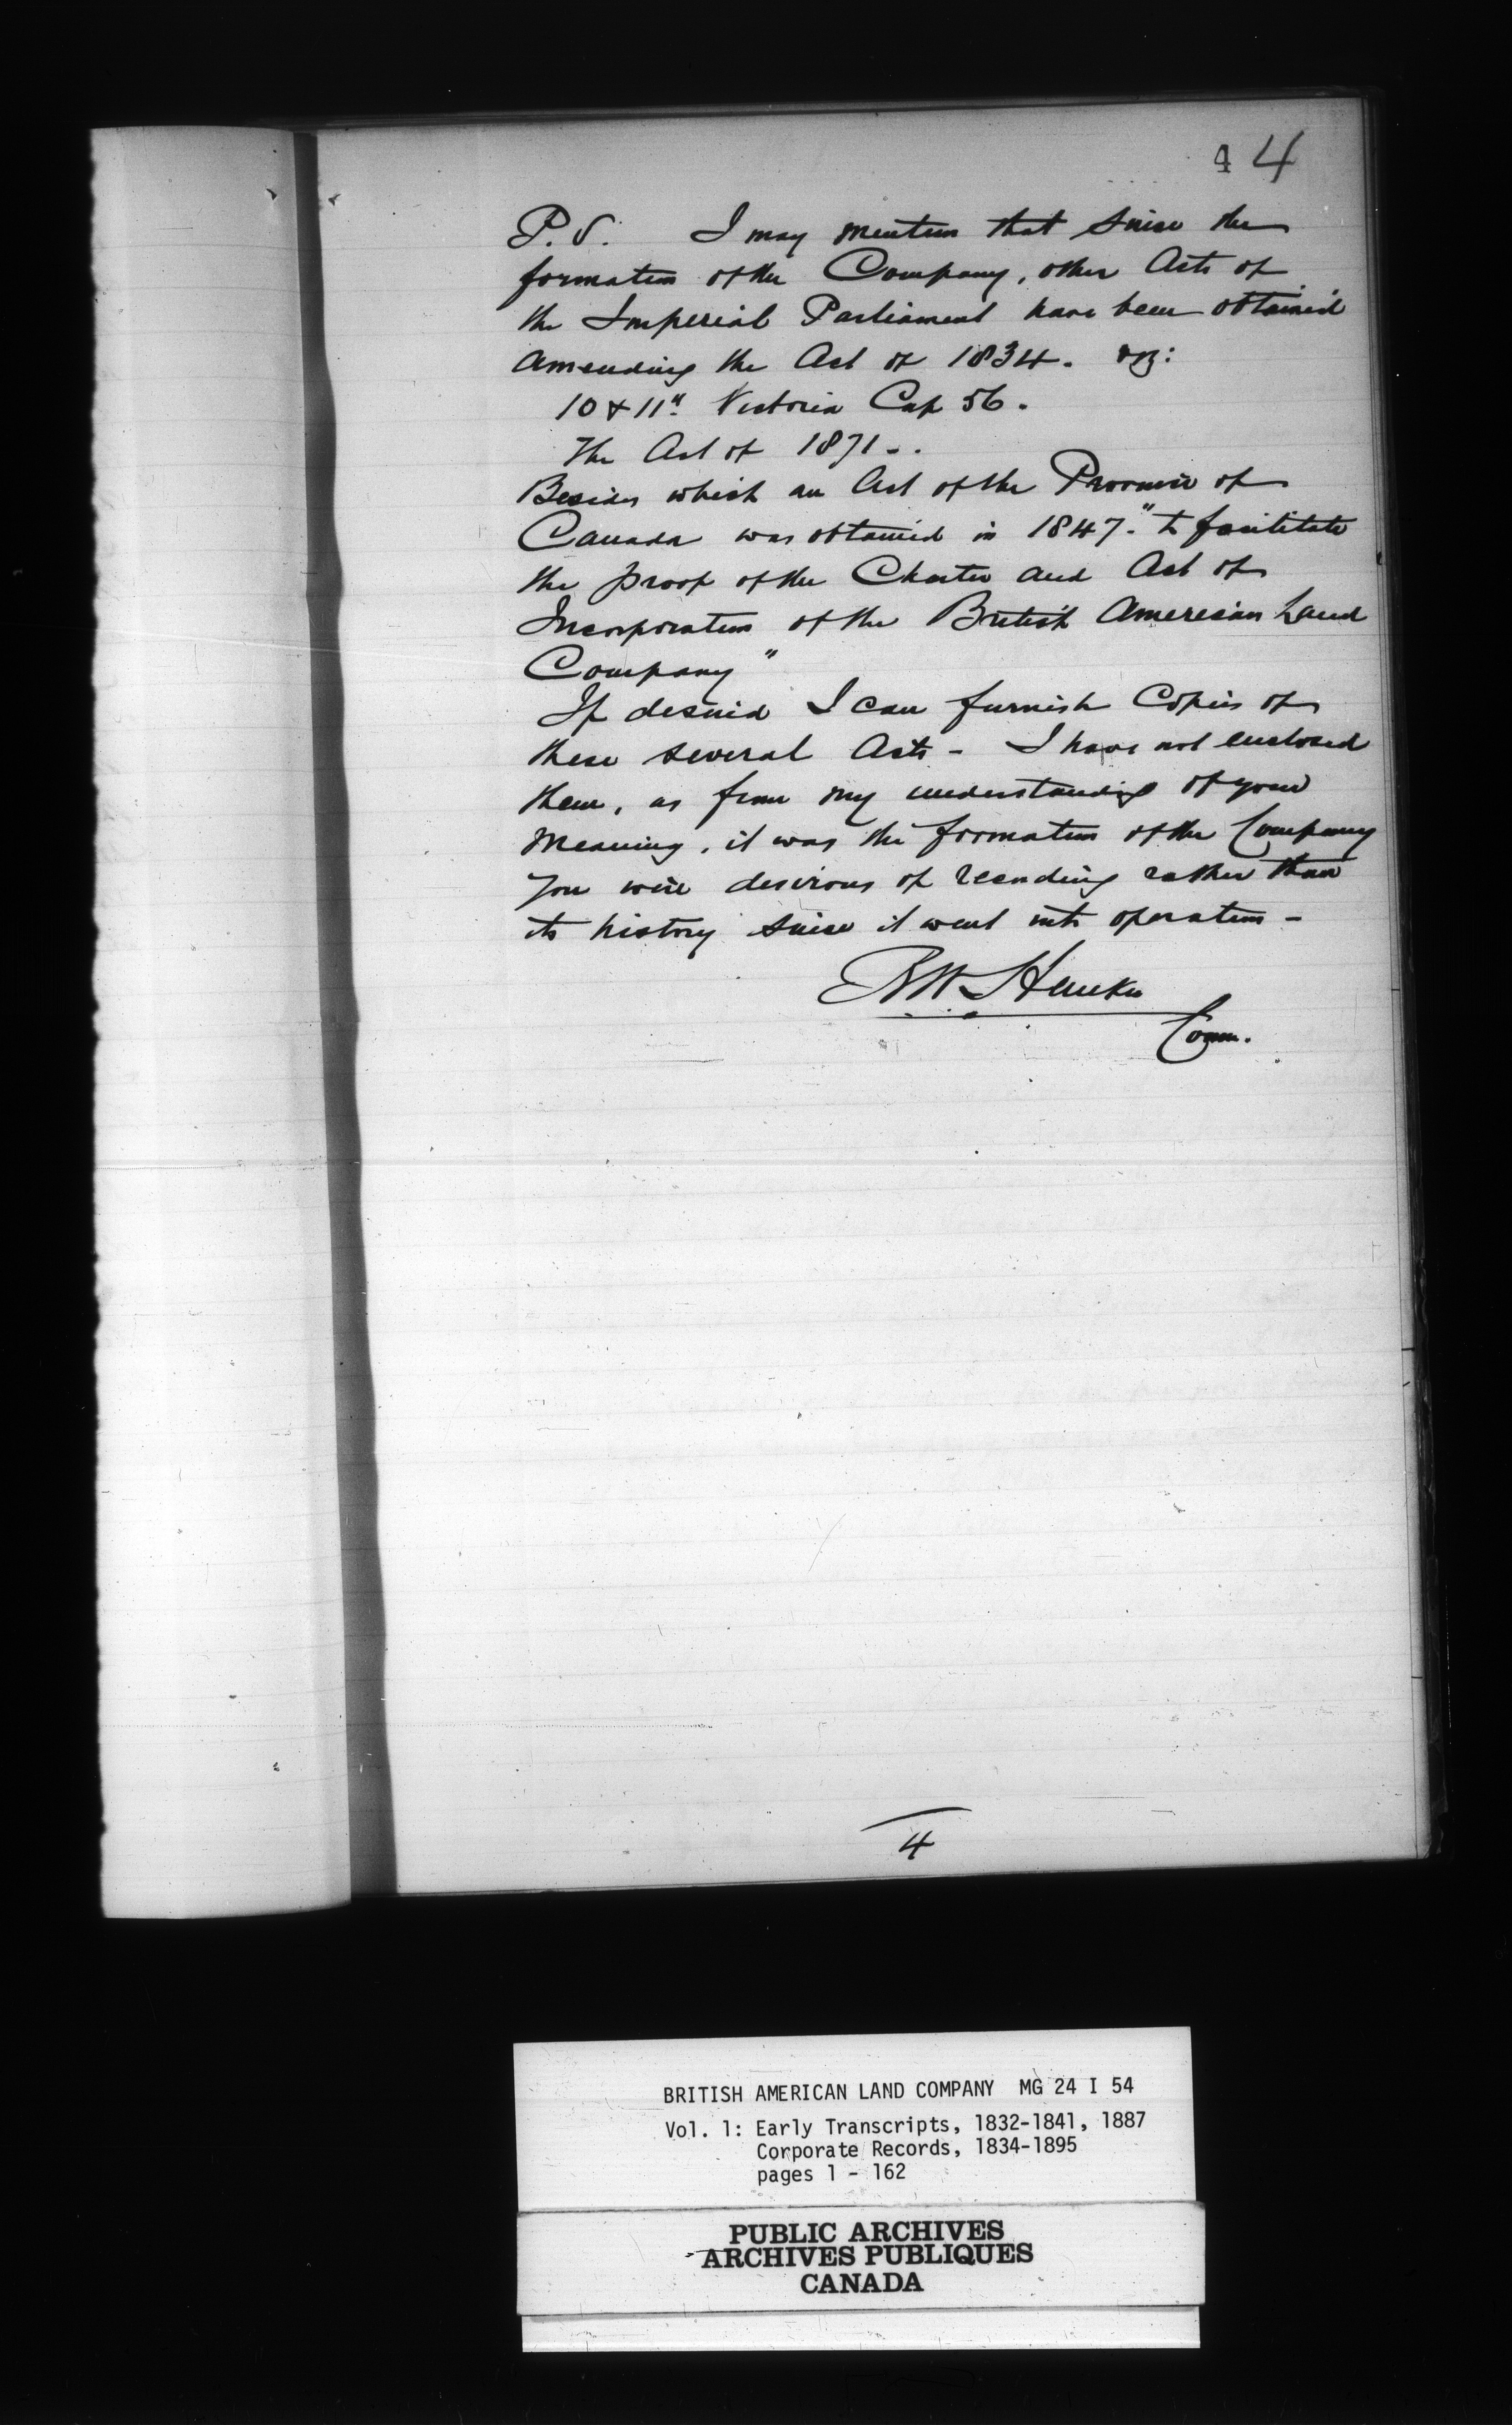 4 4
P.S. I may mention that since the
formation of the Company, other Acts of
the Imperial Parliament have been obtained
amending the Act of 1834. viz:
10 & 11" Victoria Cap 56.
The Act of 1871..
Besides which an Act of the Province of
Canada was obtained in 1847. "to facilitate
the proof of the Charter and Act of
Incorporation of the British American Land
Company"
If desired I can furnish Copies of
these several Acts - I have not enclosed
them, as from my understanding of your
meaning, it was the formation of the Company
you were desirous of recording rather than
its history since it went into operation -
R W Heneker
Comm.
4
BRITISH AMERICAN LAND COMPANY MG 24 I 54
Vol. 1: Early Transcripts, 1832-1841, 1887
Corporate Records, 1834-1895
pages 1 - 162
PUBLIC ARCHIVES
ARCHIVES PUBLIQUES
CANADA